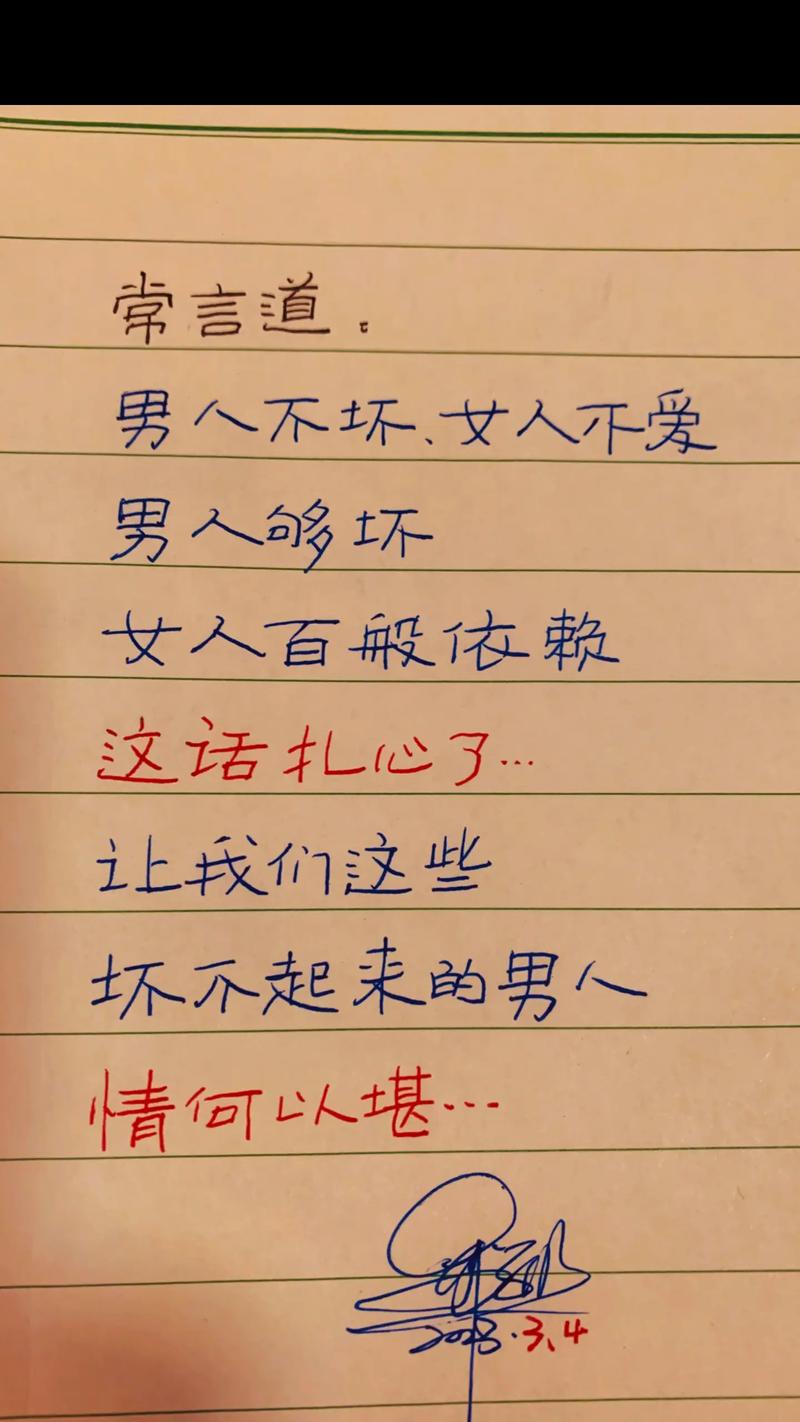 常言道。
男人不坏、女人不爱
男人够坏
女人百般依赖
这话扎心了...
让我们这些
坏不起来的男人
情何以堪...
2023.3.4